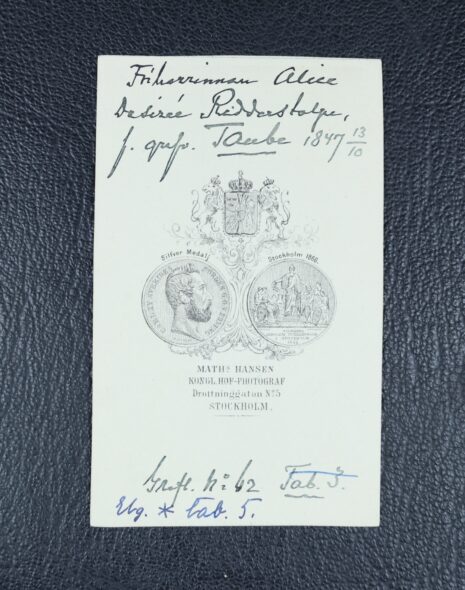 Friherrinnan Alice
Desirée Ridderstolpe,
f. grefv. Taube 1847 13/10
Silfver Medalj
Stockholm 1866.
MATHS HANSEN
KONGL. HOF-PHOTOGRAF
Drottninggatan No 5
STOCKHOLM.
Grefl. No 62 Tab. 3.
Elg. * tab. 5.